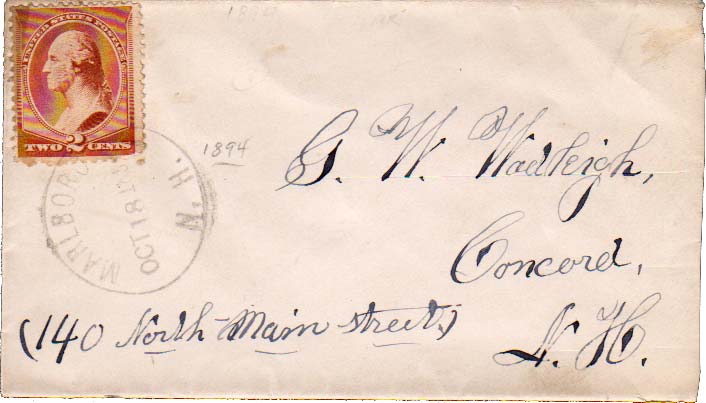 UNITED STATES POSTAGE
TWO 2 CENTS
1894
MARLBORO N.H.
OCT 18
G. W. Wadleigh,
Concord,
(140 North Main street.)
N. H.